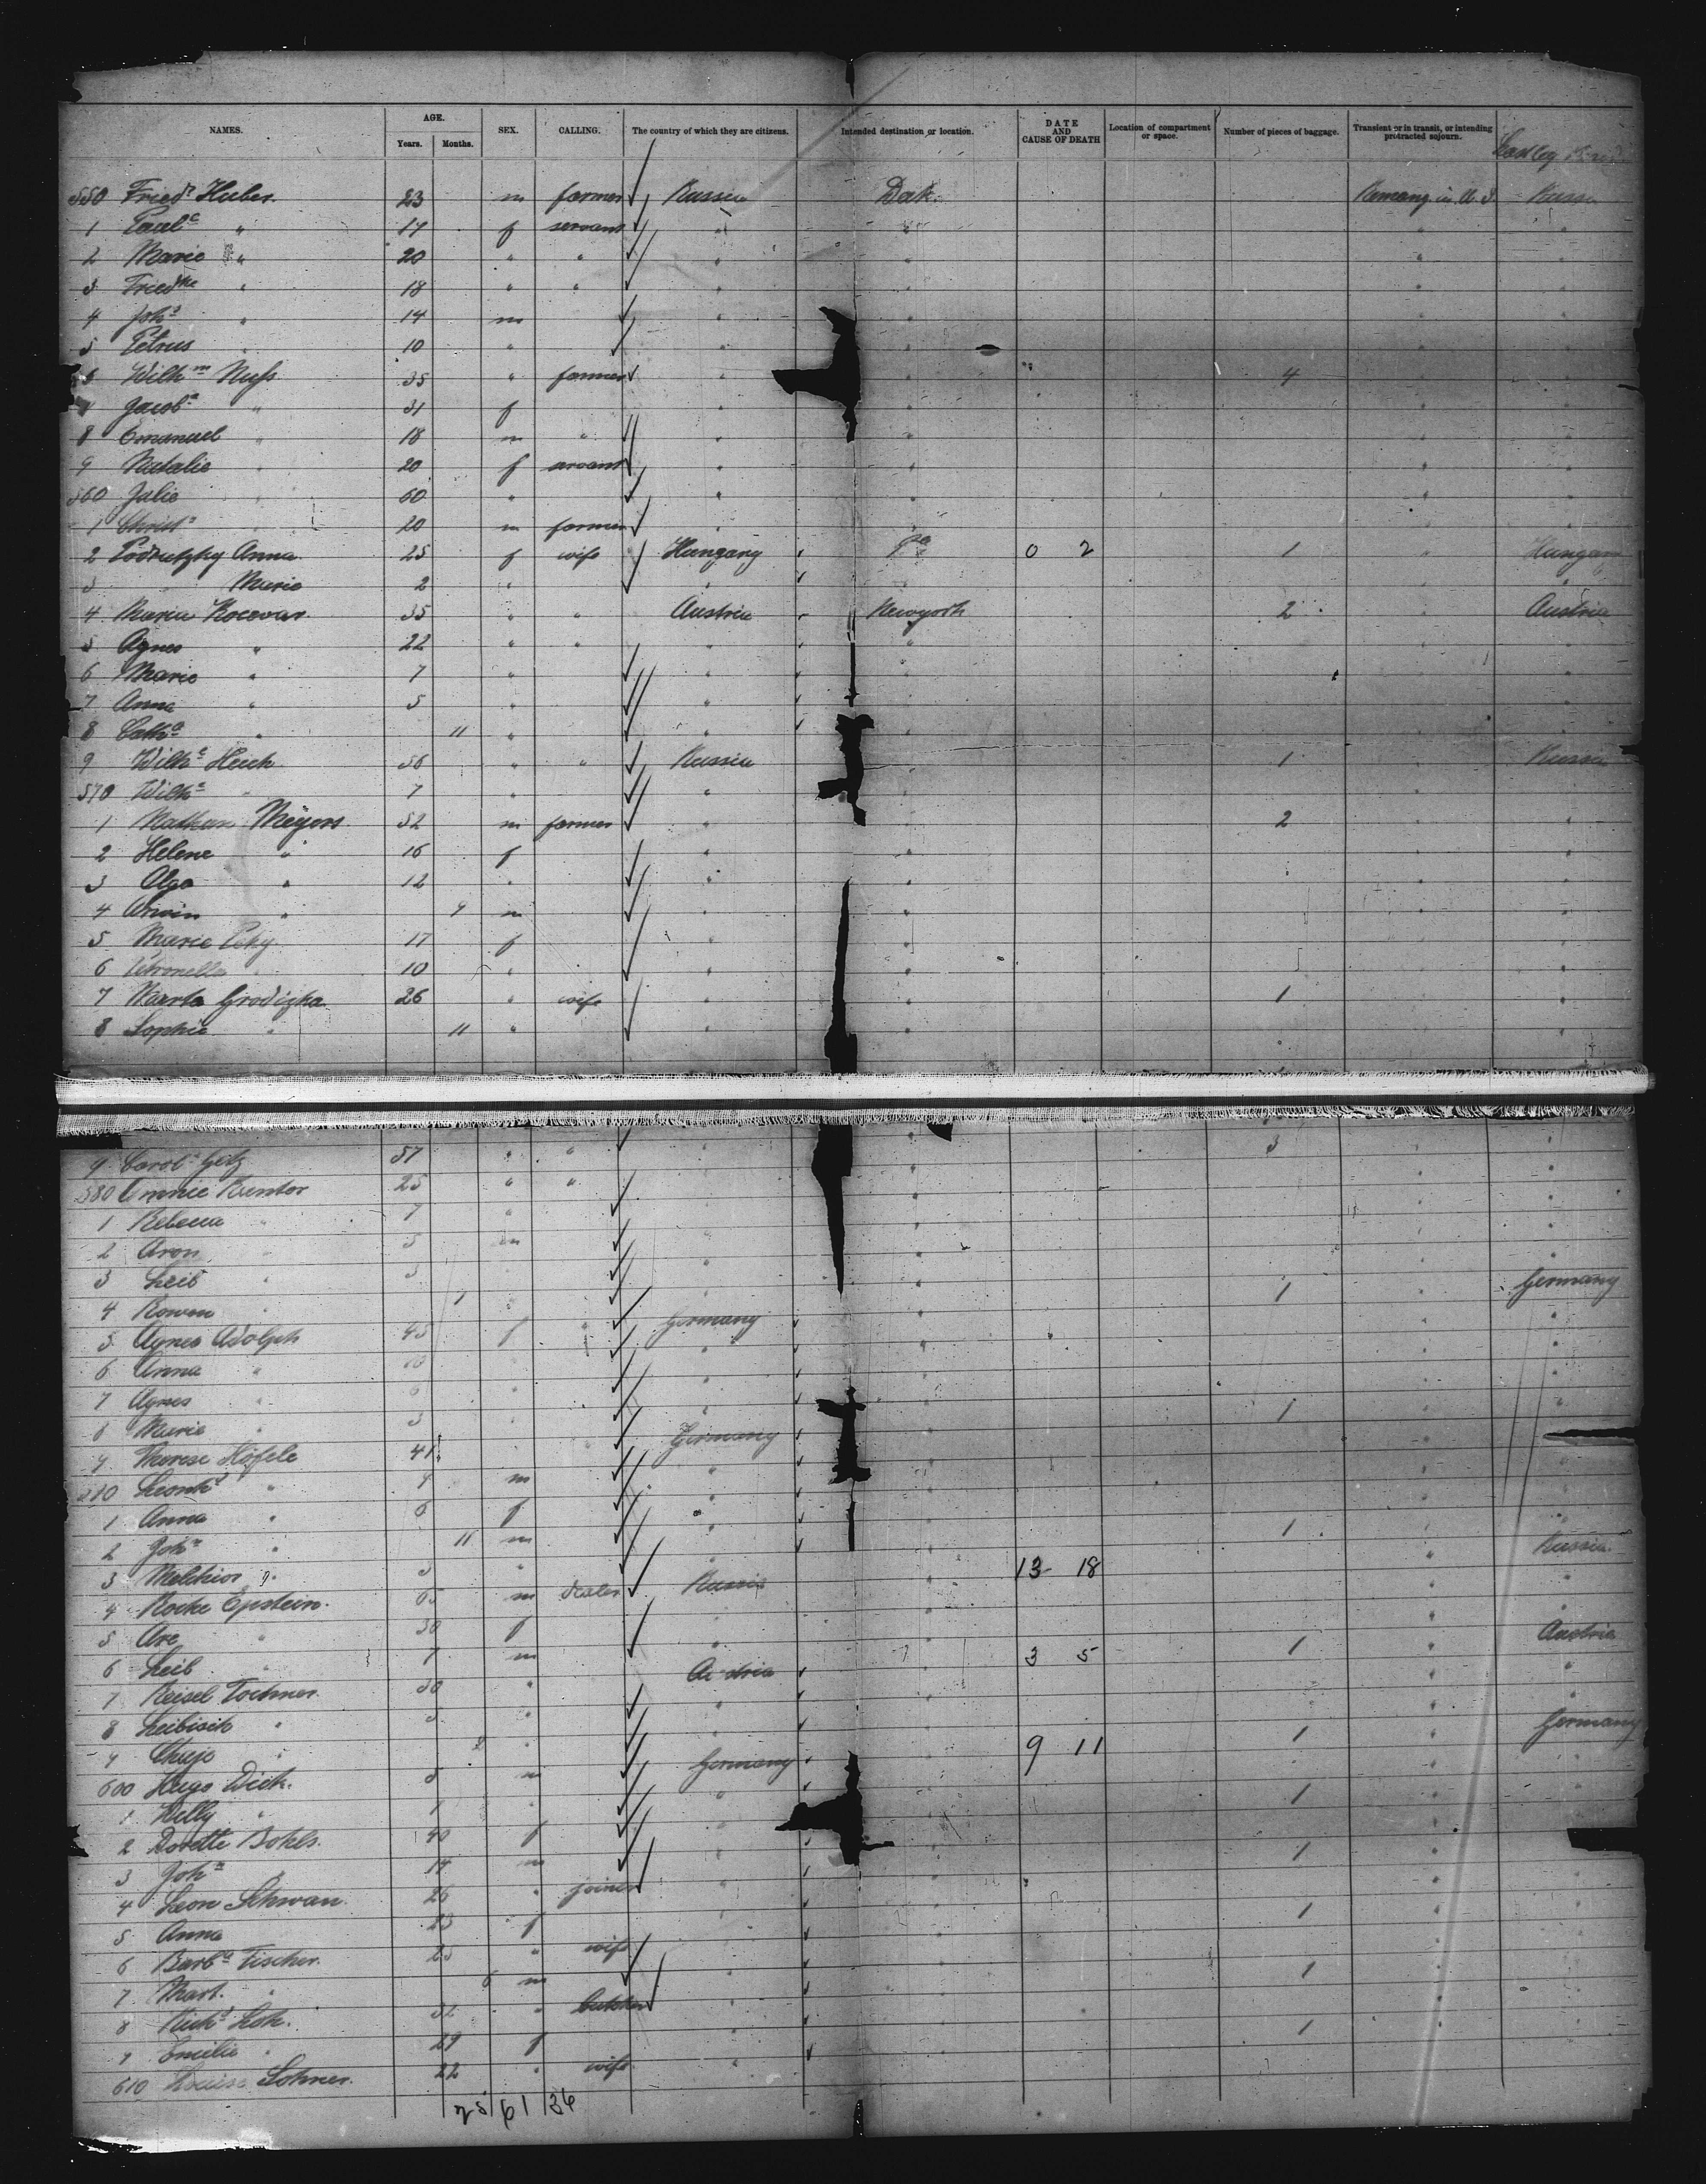 NAMES. AGE. SEX. CALLING. The country of which they are citizens. Intended destination or location. DATE AND CAUSE OF DEATH Location of compartment or space. Number of pieces of baggage. Transient or in transit, or intending protracted sojourn.
Years. Months.
550 Friedr Huber. 23 m farmer Russia Dak. Remang in U. S. Russia
1 Paule " 17 f servant " " " "
2 Marie " 20 " " " " "
3 Friedke " 18 " " " " "
4 Johs " 14 m " " "
5 Petrus 10 " " "
6 Wilhm Nuss 35 " farmer " 4
7 Jacoba " 31 f " "
8 Emanuel " 18 m " " "
9 Natalie " 20 f servant " "
560 Julie 60 " " "
1 Christn 20 m farmer " "
2 Podrutzky Anna 25 f wife Hungary Pa 0 2 1 " Hungary
3 Marie 2 " " "
4 Maria Kocevar. 35 " " Austria Newyork 2 Austria
5 Agnes " 22 " " " "
6 Marie " 7 " "
7 Anna " 5 " "
8 Catha " 11 " "
9 Wilhe Heich 56 " " Russia 1 Russia
570 Wilhe " 7 " "
1 Nathan Meyers 52 m farmer " 2
2 Helene " 16 f " "
3 Olga " 12 " " "
4 Erwin " 9 m " "
5 Marie Peky 17 f " "
6 Petronella 10 " " "
7 Marta Grodizka 26 " wife " " 1
8 Sophie " 11 " " "
9 Carol. Getz 57 " " " 3
580 Emmie Kantor 25 " "
1 Rebecca " 7 "
2 Aron 5 m
3 Leib " 3
4 Rowen " 1
5 Agnes Adolph 45 f " Germany 1 Germany
6 Anna " 10 "
7 Agnes " 6 " "
8 Marie " 3 "
9 Therese Höfele 41 Germany 1
Leonhd " 9 m "
1 Anna " 6 f "
2 Johs " 11 m "
3 Melchior " 3 " " 1
4 Rocke Epstein. 65 m dealer Russia 13- 18 Russia
5 Are " 30 f "
6 Leib " 7 m "
7 Reisel Tochner. 30 " Austria 3 5 1 Austria
8 Leibisch " 3 " "
9 Chaje " "
600 Hugo Dick. 8 m Germany 9 11 1 Germany
1 Willy " 7 " "
2 Dorette Bohls. 40 f " 1
3 Johs " 14 m "
4 Leon Schwan. 26 " joiner " 1
5 Anna 23 " f
6 Barba Fischer. 25 " wife 1
7 Mart. " 6 m "
8 Richd Loh. 32 " butcher " 1
9 Emilie " 29 f "
610 Louise Lohner. 22 " wife " 1
25 61 36